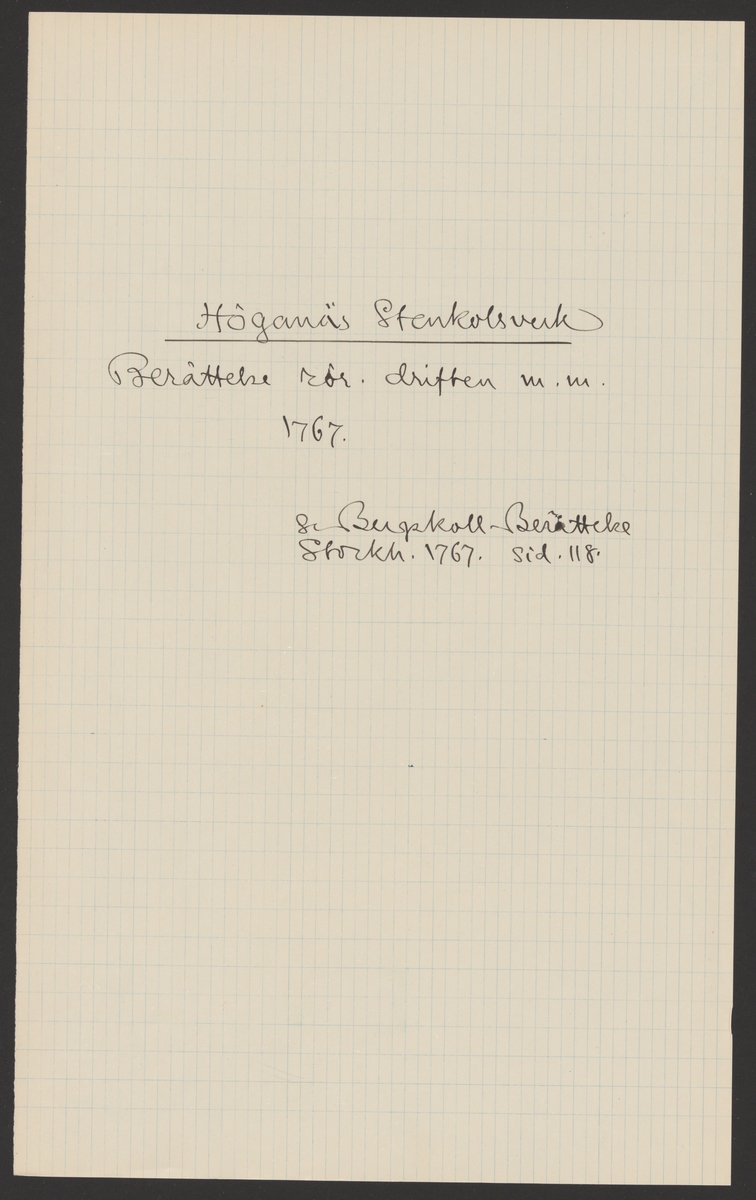 Höganäs Stenkolsverk
Berättelse rör. driften m.m.
1767.
Se Bergskoll-Berättelse
Stockh. 1767. sid. 118.